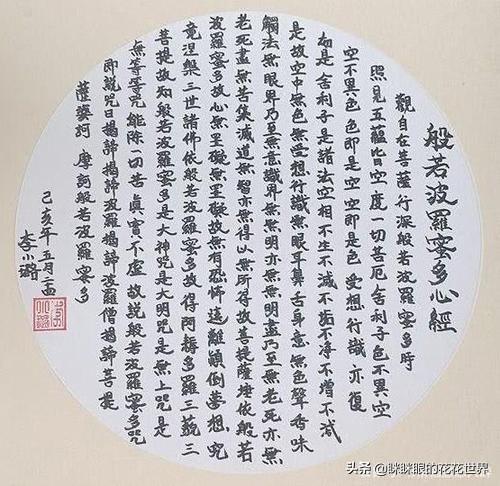 般若波羅蜜多心經
觀自在菩薩行深般若波羅蜜多時
照見五蘊皆空度一切苦厄舍利子色不異空
空不異色色即是空空即是色受想行識亦復
如是舍利子是諸法空相不生不滅不垢不淨不增不減
是故空中無色無受想行識無眼耳鼻舌身意無色聲香味
觸法無眼界乃至無意識界無無明亦無無明盡乃至無老死亦無
老死盡無苦集滅道無智亦無得以無所得故菩提薩埵依般若
波羅蜜多故心無罣礙無罣礙故無有恐怖遠離顛倒夢想究
竟涅槃三世諸佛依般若波羅蜜多故得阿耨多羅三藐三
菩提故知般若波羅蜜多是大神咒是大明咒是無上咒是
無等等咒能除一切苦真實不虛故說般若波羅蜜多咒
即說咒曰揭諦揭諦波羅揭諦波羅僧揭諦菩提
薩婆訶 摩訶般若波羅蜜多
己亥年五月二
李小璐
头条 @眯眯眼的花花世界